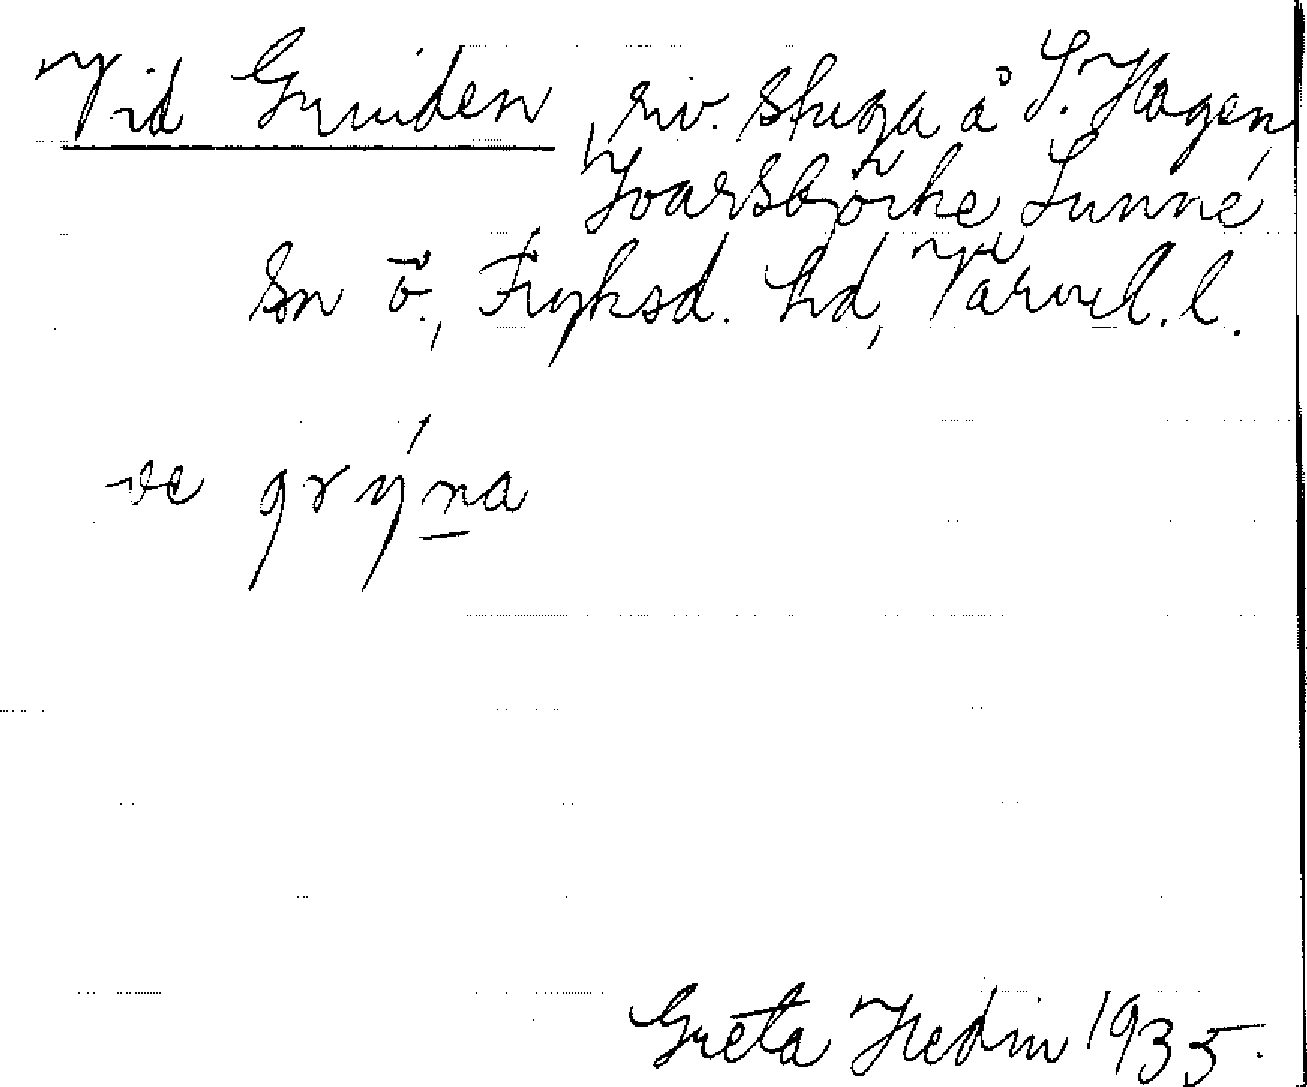 Vid Grinden, riv. stuga å S. Hagen,
Ivarsbjörke Sunne
sn ö., Fryksd. hd, Värml. l.
ve grýna
Greta Hedin 1935.